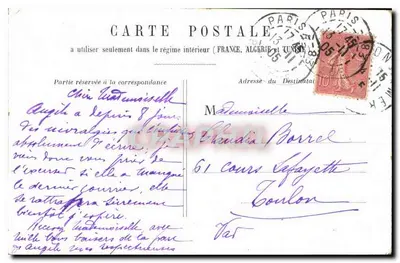 CARTE POSTALE
a utiliser seulement dans le régime intérieur (FRANCE, ALGERIE et TUNISIE)
Partie réservée à la correspondance
Adresse du Destinataire
PARIS
Chère Mademoiselle
Angèle a depuis 8 jours
des névralgies qui
absolument d'écrire, je
vous donc vous prie de
l'excuser si elle a manqué
le dernier courrier, elle
se rattrapera sûrement
bientôt j'espère.
Recevez Mademoiselle avec
mille bons baisers de la part
d'Angèle mes respectueuses
Mademoiselle
Borrel
61 cours Lafayette
Toulon
Var